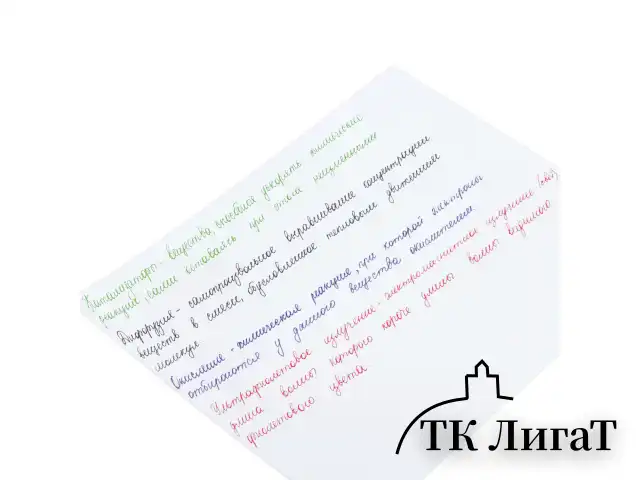 Катализаторы - вещества, способные ускорять химические
реакции, сами оставаясь при этом неизменными
Диффузия - самопроизвольное выравнивание концентрации
веществ в смеси, обусловленное тепловым движением
молекул
Окисление - химическая реакция, при которой электроны
отбираются у данного вещества окислителем
Ультрафиолетовое излучение - электромагнитное излучение
длина волны которого короче длины волны видимого
фиолетового цвета
ТК ЛигаТ